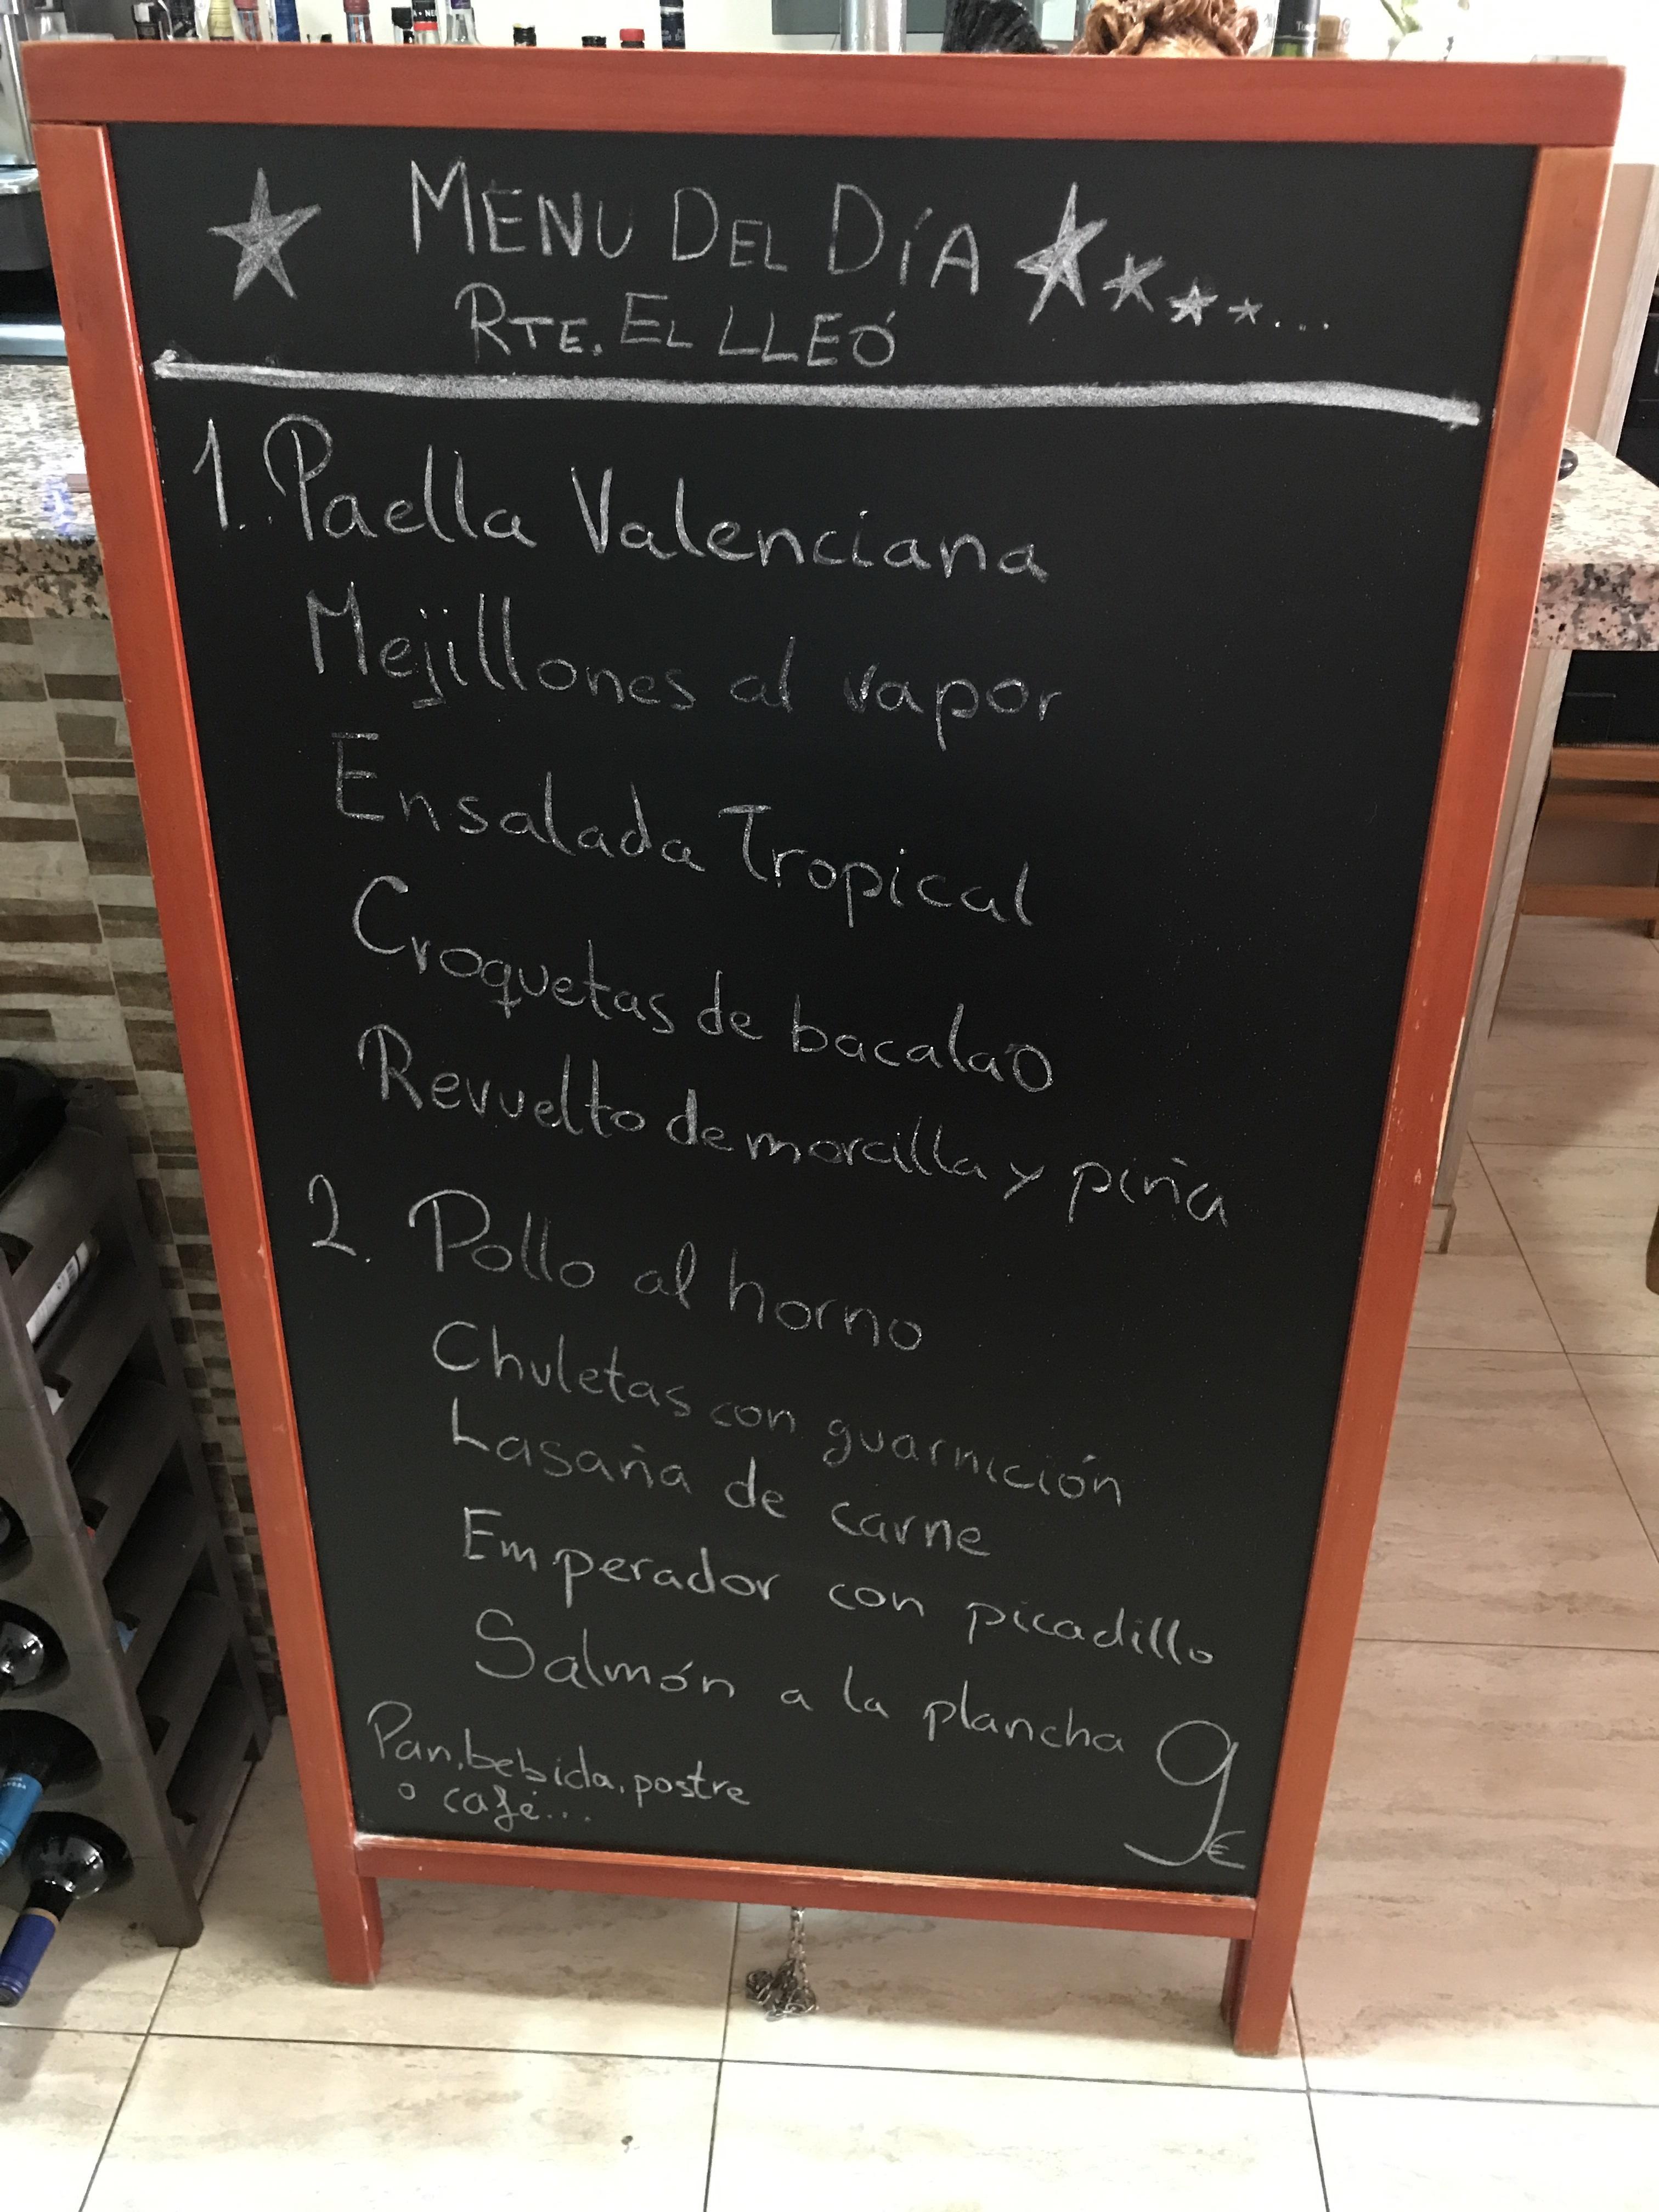 MENU DEL DÍA
RTE. EL LLEÓ
1. Paella Valenciana
Mejillones al vapor
Ensalada Tropical
Croquetas de bacalao
Revuelto de morcilla y piña
2. Pollo al horno
Chuletas con guarnición
Lasaña de carne
Emperador con picadillo
Salmón a la plancha
9€
Pan, bebida, postre
o café...